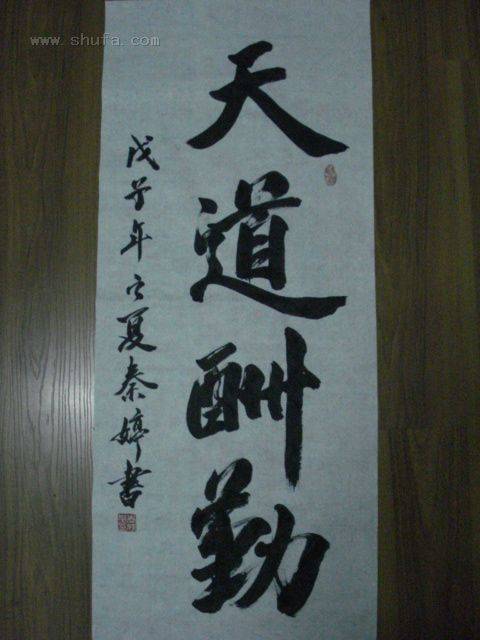 www.shufa.com
天道酬勤
戊子年之夏秦婷書